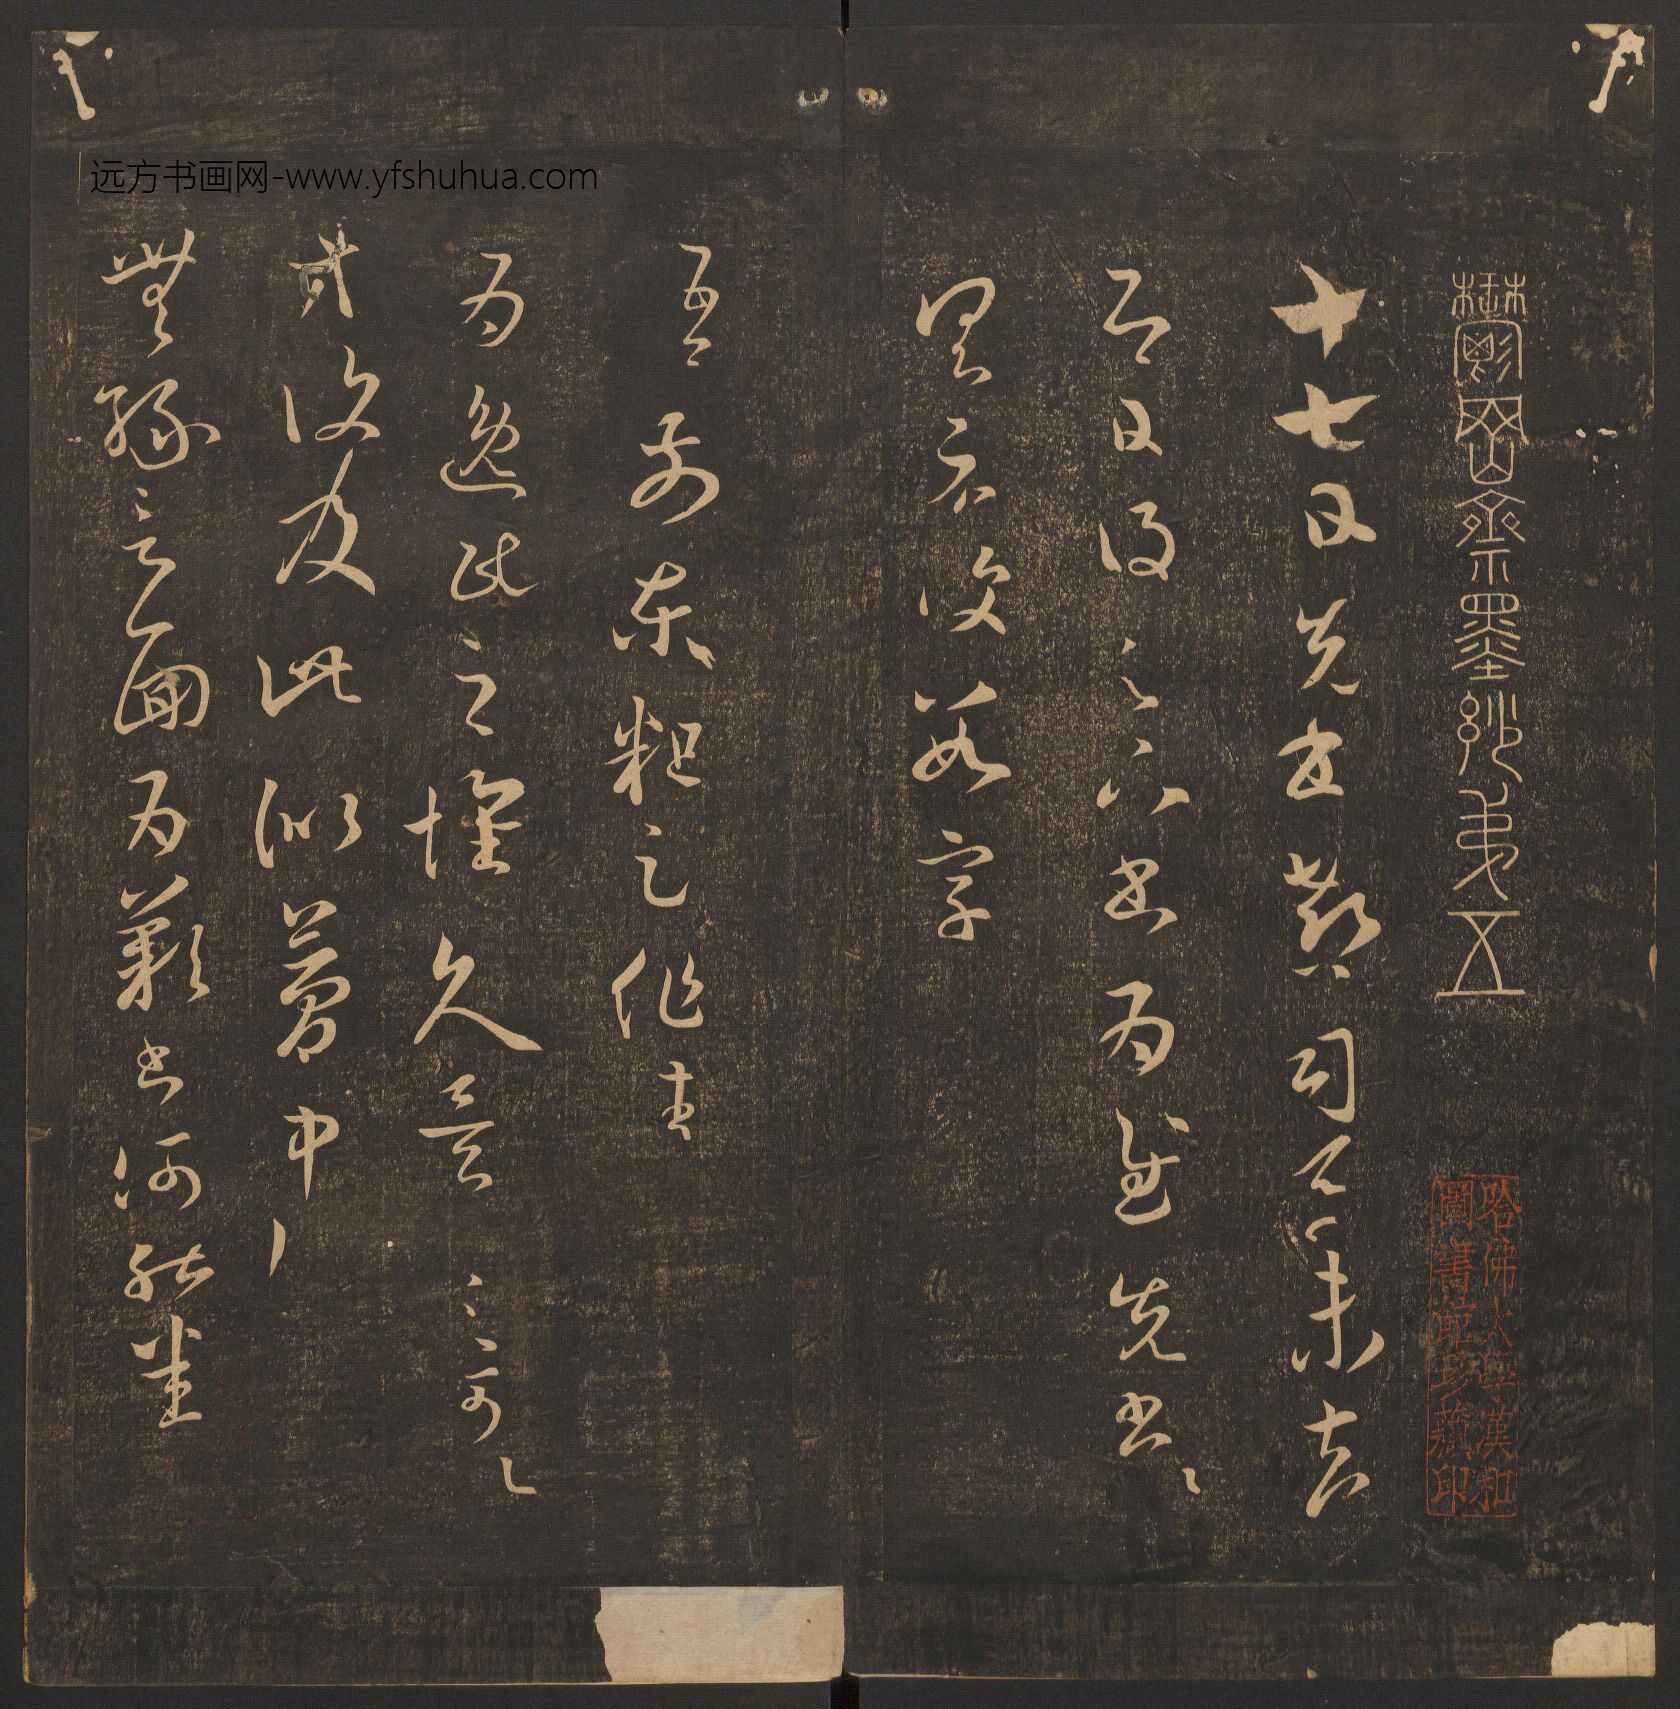 远方书画网-www.yfshuhua.com
鬱岡齋墨玅弟五
哈佛大學漢和
圖書館珍藏印
十七日先書郗司馬未去
即日得足下書為慰先書以
具示復數字
吾前東粗足作佳
為逸民之懷久矣足下何以
等復及此似夢中
無緣言面為歎書何能悉